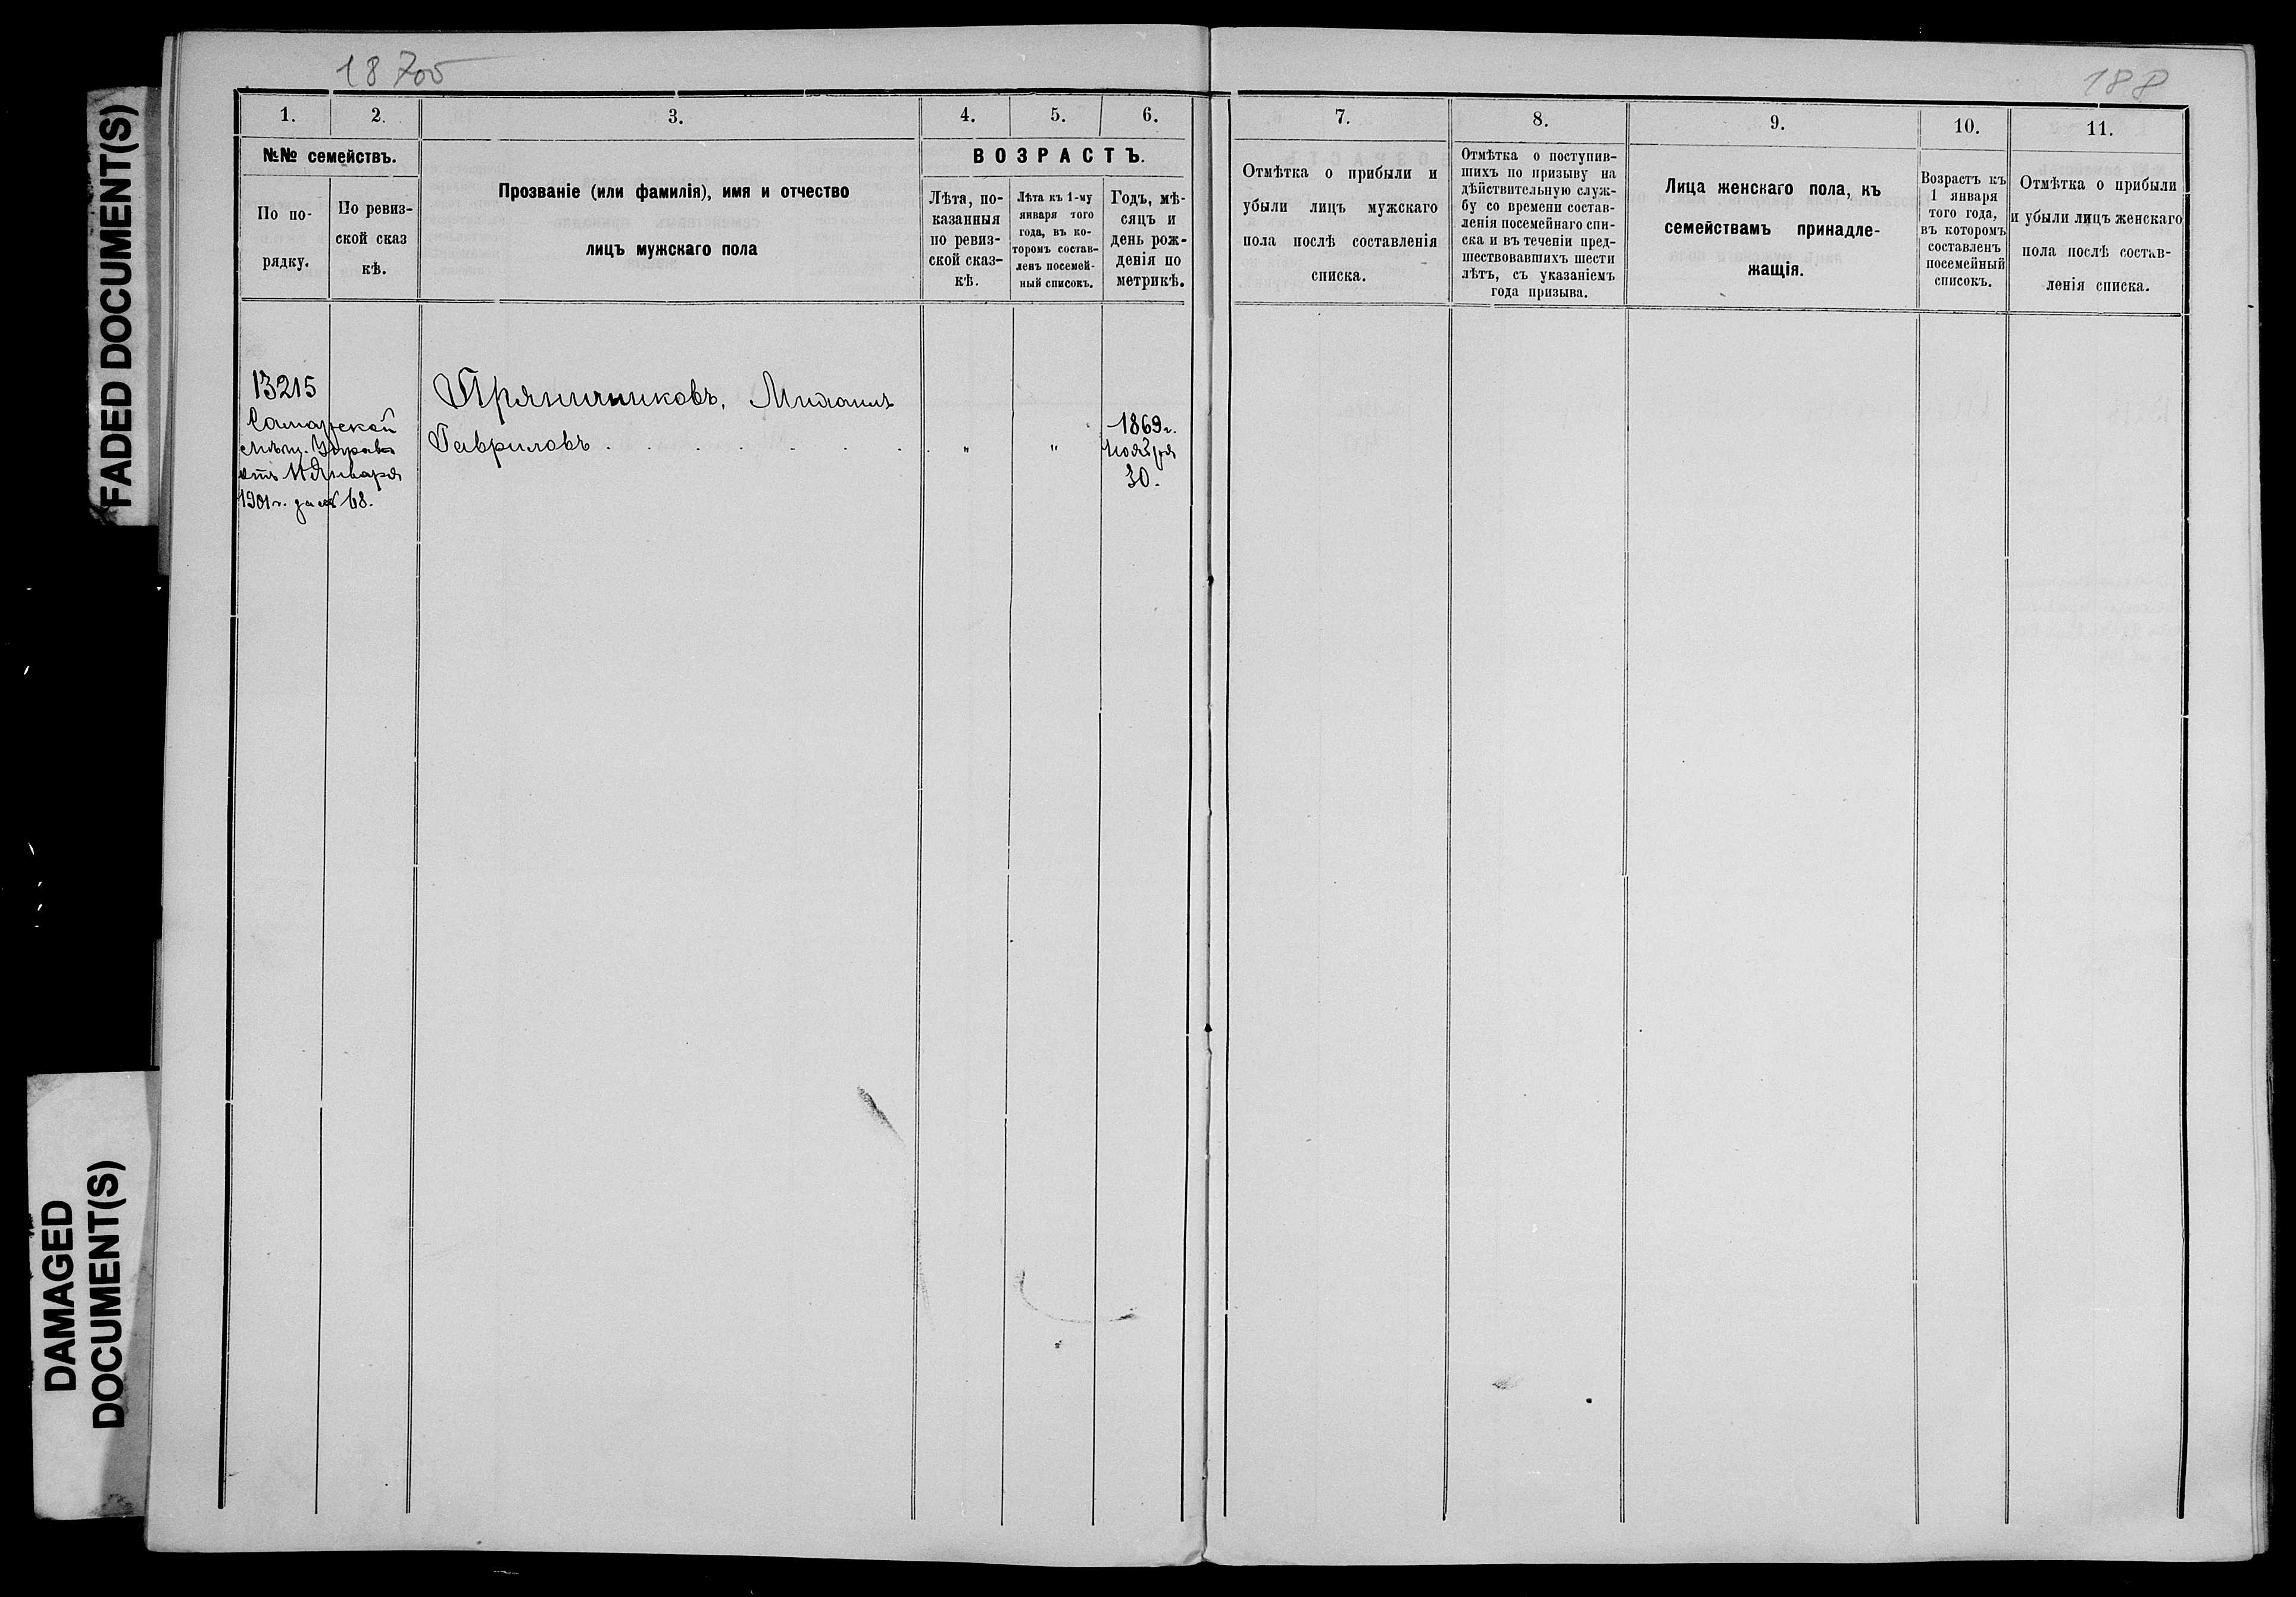 FADED DOCUMENT(S)
DAMAGED
DOCUMENT(S)
18 705
188
1.
2.
3.
4.
5.
6.
№№ семействъ.
По по-
рядку.
По ревиз-
ской сказ
кѣ.
Прозваніе (или фамилія), имя и отчество
лицъ мужскаго пола
ВОЗРАСТЪ.
Лѣта, по-
казанныя
по ревиз-
ской сказ-
кѣ.
Лѣта къ 1-му
января того
года, въ ко-
торомъ состав-
ленъ посемей-
ный списокъ.
Годъ, мѣ-
сяцъ и
день рож-
денія по
метрикѣ.
13215
Самарской
мѣщ. Управ
отъ 11 Января
1901 г. за № 68.
Пряничниковъ, Михаилъ
Гавриловъ . . . . . . . „ „
1869 г.
ноября
30.
7.
8.
9.
10.
11.
Отмѣтка о прибыли и
убыли лицъ мужскаго
пола послѣ составленія
списка.
Отмѣтка о поступив-
шихъ по призыву на
дѣйствительную служ-
бу со времени состав-
ленія посемейнаго спи-
ска и въ теченіи пред-
шествовавшихъ шести
лѣтъ, съ указаніемъ
года призыва.
Лица женскаго пола, къ
семействамъ принадле-
жащія.
Возрастъ къ
1 января
того года,
въ которомъ
составленъ
посемейный
списокъ.
Отмѣтка о прибыли
и убыли лицъ женскаго
пола послѣ состав-
ленія списка.